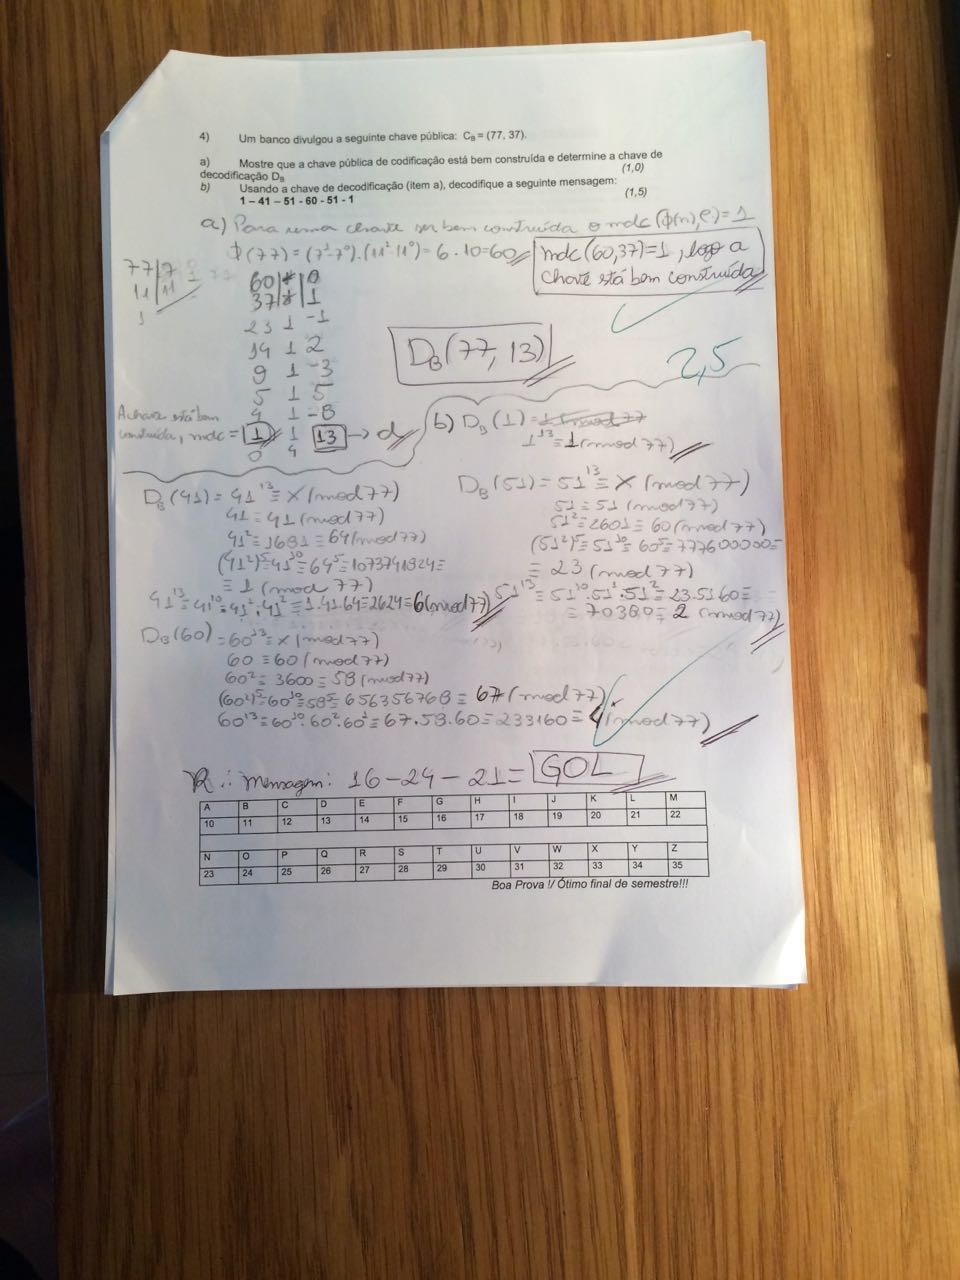 4) Um banco divulgou a seguinte chave pública: C_B = (77, 37).
a) Mostre que a chave pública de codificação está bem construída e determine a chave de
decodificação D_B (1,0)
b) Usando a chave de decodificação (item a), decodifique a seguinte mensagem: (1,5)
1 – 41 – 51 - 60 - 51 - 1
a) Para uma chave ser bem construída o mdc(ϕ(n), e) = 1
ϕ(77) = (7¹-7⁰).(11¹-11⁰) = 6.10 = 60
mdc(60,37)=1, logo a
chave está bem construída
77|7
11|11
1
60|*|0
37|*|1
23 1 -1
14 1 2
9 1 -3
5 1 5
4 1 -8
1 1 13 → d
0 4
D_B(77, 13)
2,5
A chave está bem
construída, mdc =
b) D_B(1) = 1 (mod 77)
1¹³ = 1 (mod 77)
D_B(41) = 41¹³ ≡ X (mod 77)
41 ≡ 41 (mod 77)
41² ≡ 1681 ≡ 64 (mod 77)
(41²)⁵ ≡ 41¹⁰ ≡ 64⁵ ≡ 1073741824 ≡
≡ 1 (mod 77)
41¹³ ≡ 41¹⁰ ≡ 41¹.41² ≡ 1.41.64 ≡ 2624 ≡ 6 (mod 77)
D_B(51) = 51¹³ ≡ X (mod 77)
51 ≡ 51 (mod 77)
51² ≡ 2601 ≡ 60 (mod 77)
(51²)⁵ ≡ 51¹⁰ ≡ 60⁵ ≡ 777600000 ≡
≡ 23 (mod 77)
51¹³ ≡ 51¹⁰.51¹.51² ≡ 23.51.60 ≡
≡ 70380 ≡ 2 (mod 77)
D_B(60) = 60¹³ ≡ X (mod 77)
60 ≡ 60 (mod 77)
60² ≡ 3600 ≡ 58 (mod 77)
(60²)⁵ ≡ 60¹⁰ ≡ 58⁵ ≡ 656356768 ≡ 67 (mod 77)
60¹³ ≡ 60¹⁰.60².60¹ ≡ 67.58.60 ≡ 233160 ≡ 4 (mod 77)
R ∴ Mensagem: 16 - 24 - 21 = GOL
A B C D E F G H I J K L M
10 11 12 13 14 15 16 17 18 19 20 21 22
N O P Q R S T U V W X Y Z
23 24 25 26 27 28 29 30 31 32 33 34 35
Boa Prova !/ Ótimo final de semestre!!!